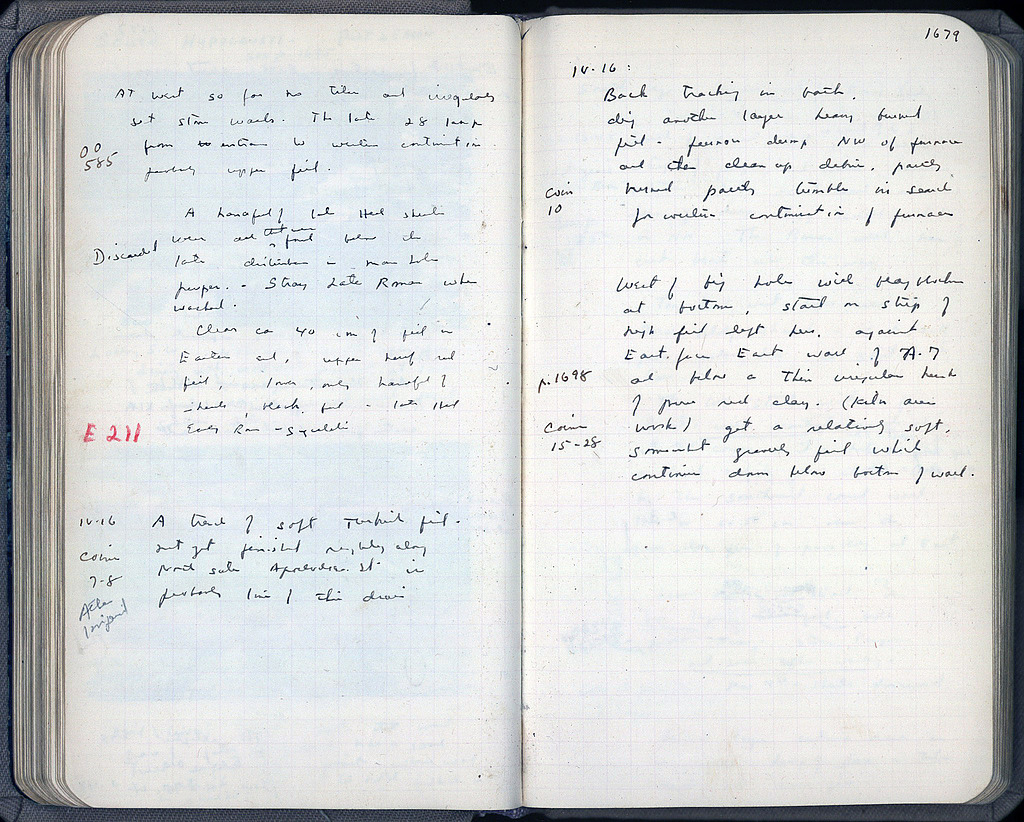 At west so far no tiles and irregularly
set stone walls. The late 28 lamp
00
585
from entrance to western continuation.
probably upper fill.
A handful of late Hell sherds
Discarded
were out that were found below the
late disturbance in manhole
proper. - Stray Late Roman when
washed.
Clear ca 40 cm of fill in
Eastern end, upper half red
fill, lower, only handful of
sherds, black, fill - late Hell
E 211
Early Rom
IV·16
A trench of soft Turkish fill.
Coin
7-8
not yet finished
North side
probably line of this drain
1679
IV·16:
Back trenching in bath.
dig another larger heavy burned
fill. NW of furnace
and clean up debris, partly
Coin
10
burned partly tumble in search
for western continuation of furnace
West of big hole with
at bottom, start on strip of
high fill left here, against
East face East wall of A·7
p. 1698
and below a thin irregular
of pure red clay. (kiln area
Coin
15-28
work) get a relatively soft,
somewhat gravelly fill which
continues down below bottom of wall.